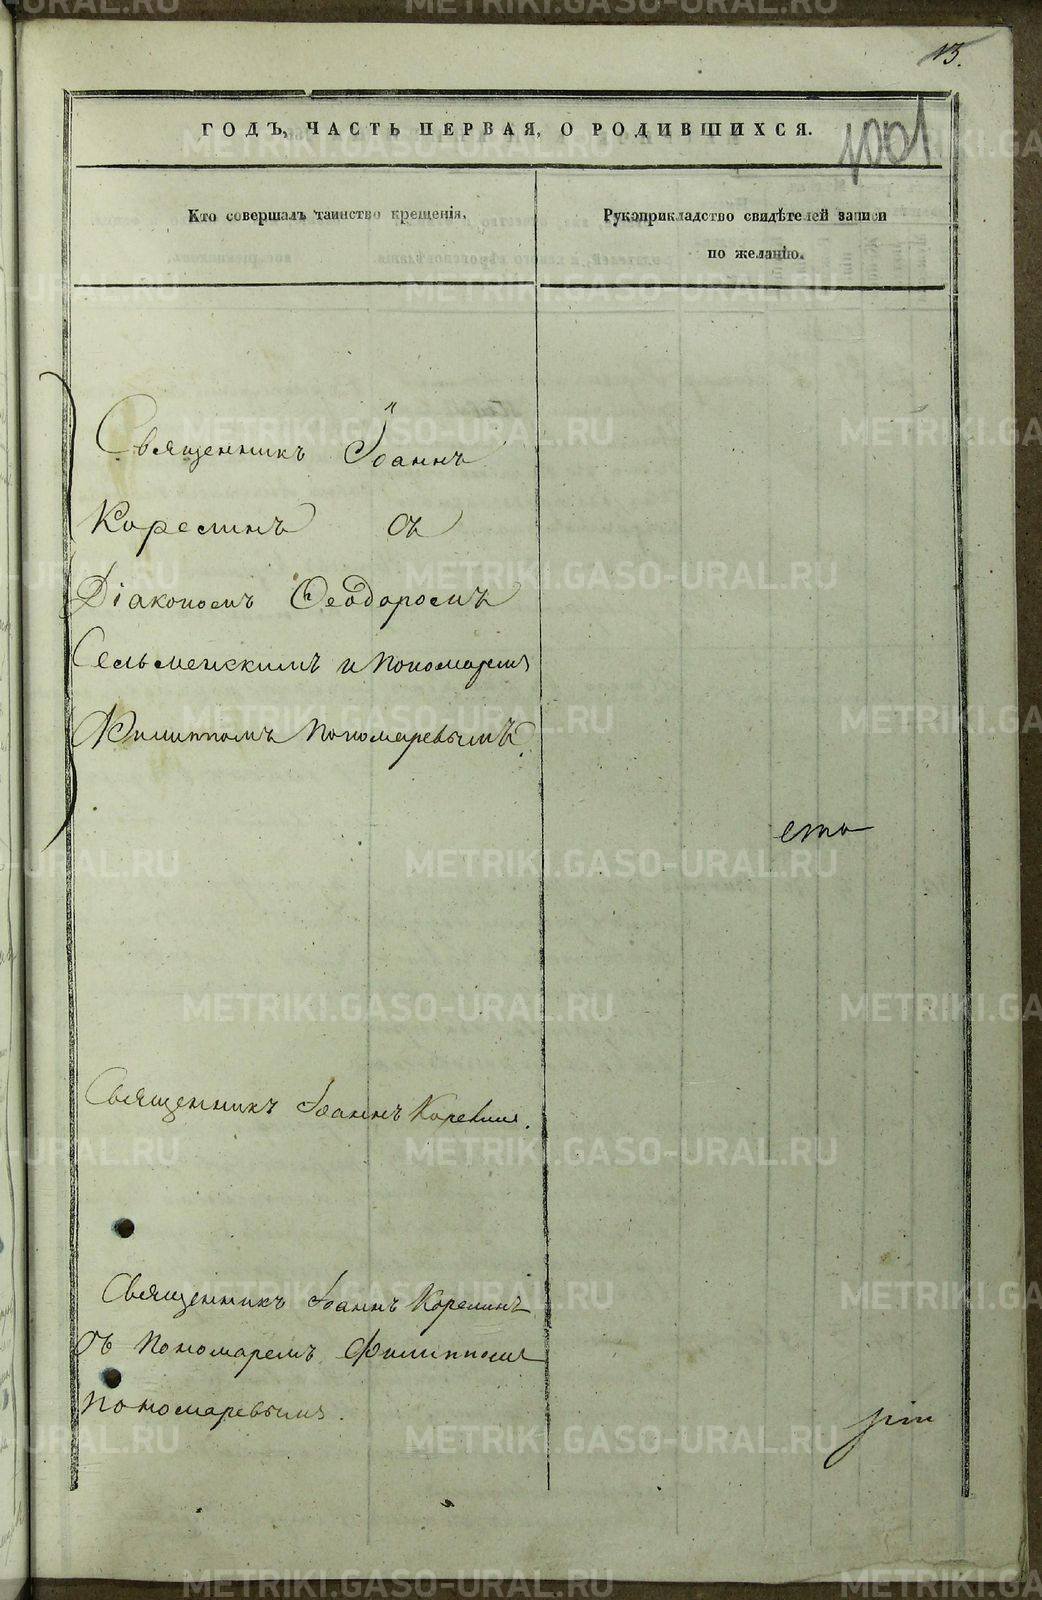 13.
ГОДЪ, ЧАСТЬ ПЕРВАЯ, О РОДИВШИХСЯ.
1001
Кто совершалъ таинство крещенія.
Рукоприкладство свидѣтелей записи
по желанію.
Священникъ Іоаннъ
Корелинъ съ
Діакономъ Ѳеодоромъ
Сельменскимъ и пономаремъ
Филиппомъ Пономаревымъ.
сто
Священникъ Іоаннъ Корелинъ.
Священникъ Іоаннъ Корелинъ
съ Пономаремъ Филиппомъ
Пономаревымъ.
METRIKI.GASO-URAL.RU